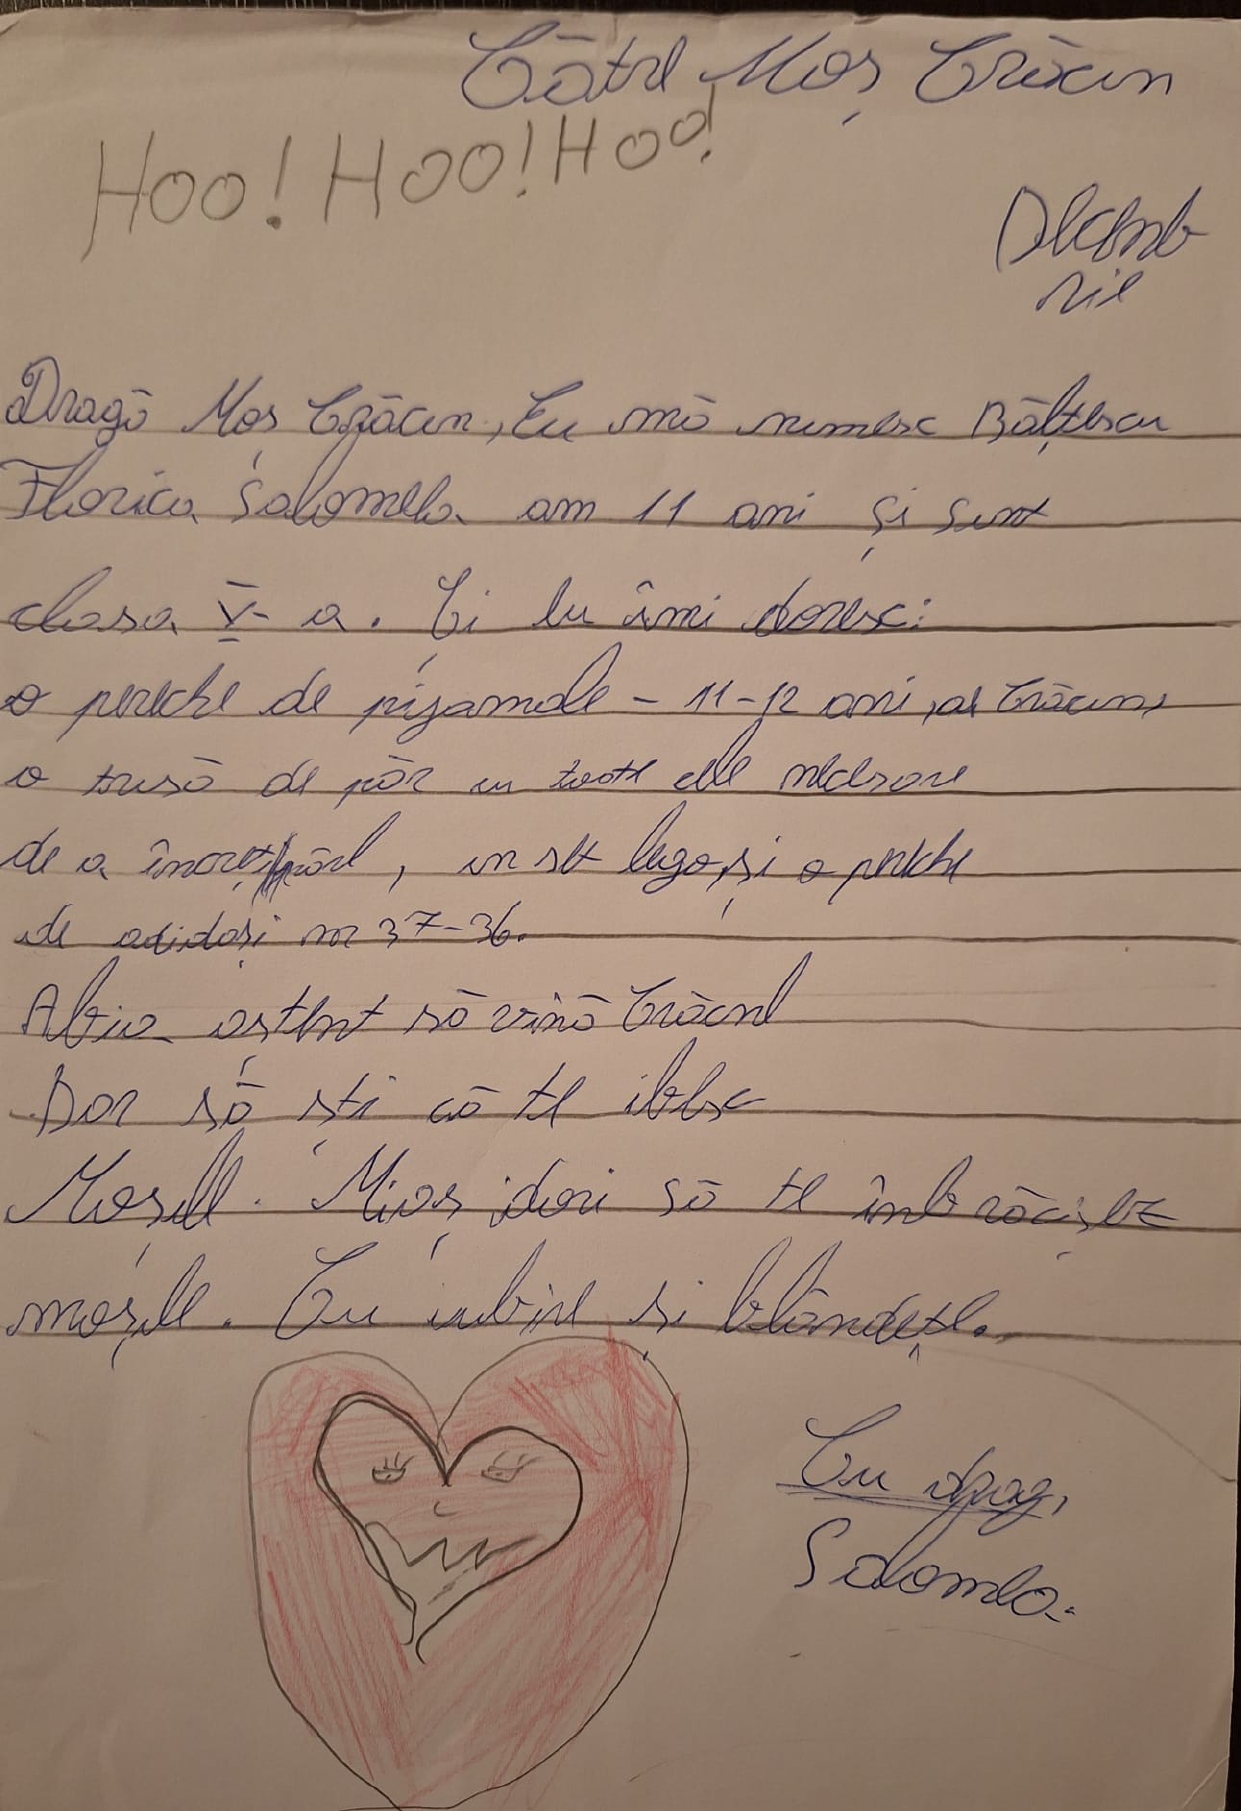 Către Moș Crăcun
HOO! HOO! HOO!
Decemb
rie
Dragă Moș Crăcun, Eu mă numesc Bălțescu
Florica Salomela am 11 ani și sunt
clasa V-a. Și eu îmi doresc:
o pereche de pijamale - 11-12 ani, de Crăcun,
o trusă de păr cu toate cele necesare
de a încreț părl, un set lego, și o pereche
de adidași nr 37-36.
Abia aștept să vină Crăcnl
Dar să ști că te ibesc
Moșule. Mi-aș dori să te îmbrăcișez
moșule. Cu iubire și blândețe.
Cu drag,
Salomela.